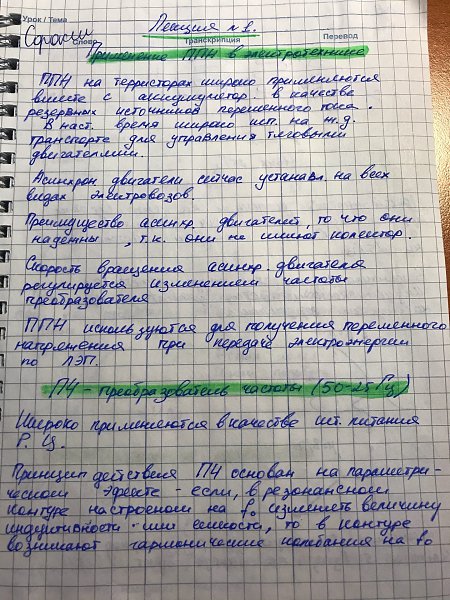 Урок / Тема
Лекция №1.
Сорокин
Слово Транскрипция Перевод
Применение ППН в электротехнике
ППН на терристорах широко применяются
вместе с аккумулятор. в качестве
резервных источников переменного тока.
В наст. время широко исп. на ж.д.
транспорте для управления тяговыми
двигателями.
Асинхрон двигатели сейчас устанавл. на всех
видах электровозов.
Преимущество асинхр. двигателей, то что они
надежны, т.к. они не имеют колектор.
Скорость вращения асинхр. двигателя
регулируется изменением частоты
преобразователя
ППН используются для получения переменного
напряжения при передаче электроэнергии
по ЛЭП.
ПЧ - преобразователь частоты (50-25 Гц)
Широко применяются в качестве ист. питания
Р. Ц.
Принцип действия ПЧ основан на параметри-
ческом эфекте - если, в резонансном
контуре настроеном на f₀ изменять величину
индуктивности или емкости, то в контуре
возникают гармонические колебания на f₀